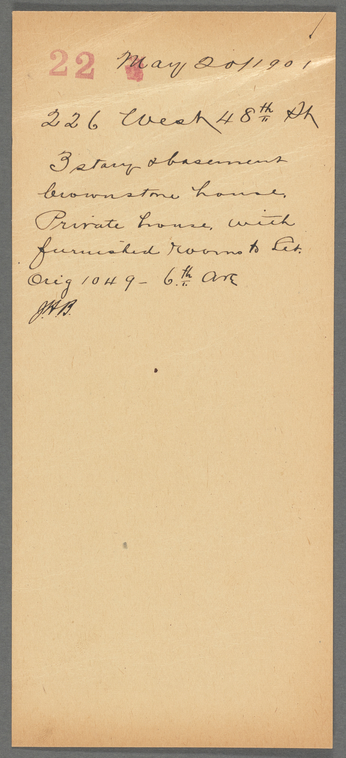 22 May 20/1901
226 West 48th St
3 story & basement
brownstone house.
Private house, with
furnished rooms to Let.
Orig 1049 - 6th Ave
J.H.B.